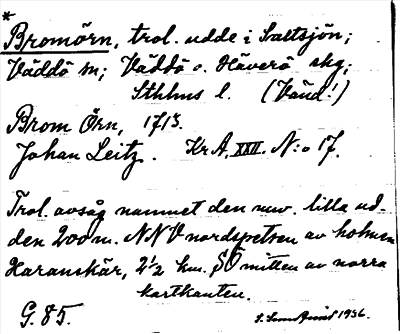 *
Bromörn, trol. udde i Saltsjön;
Väddö sn; Väddö o. Häverö skg;
Sthlms l. (Vänd!)
Brom Örn, 1713.
Johan Leitz. Kr.A. XXII. N:o 17.
Trol. avsåg namnet den nuv. lilla ud-
den 200 m. NNV nordspetsen av holmen
Haranskär, 2 1/2 km. SÖ mitten av norra
kartkanten.
G. 85.
1936.